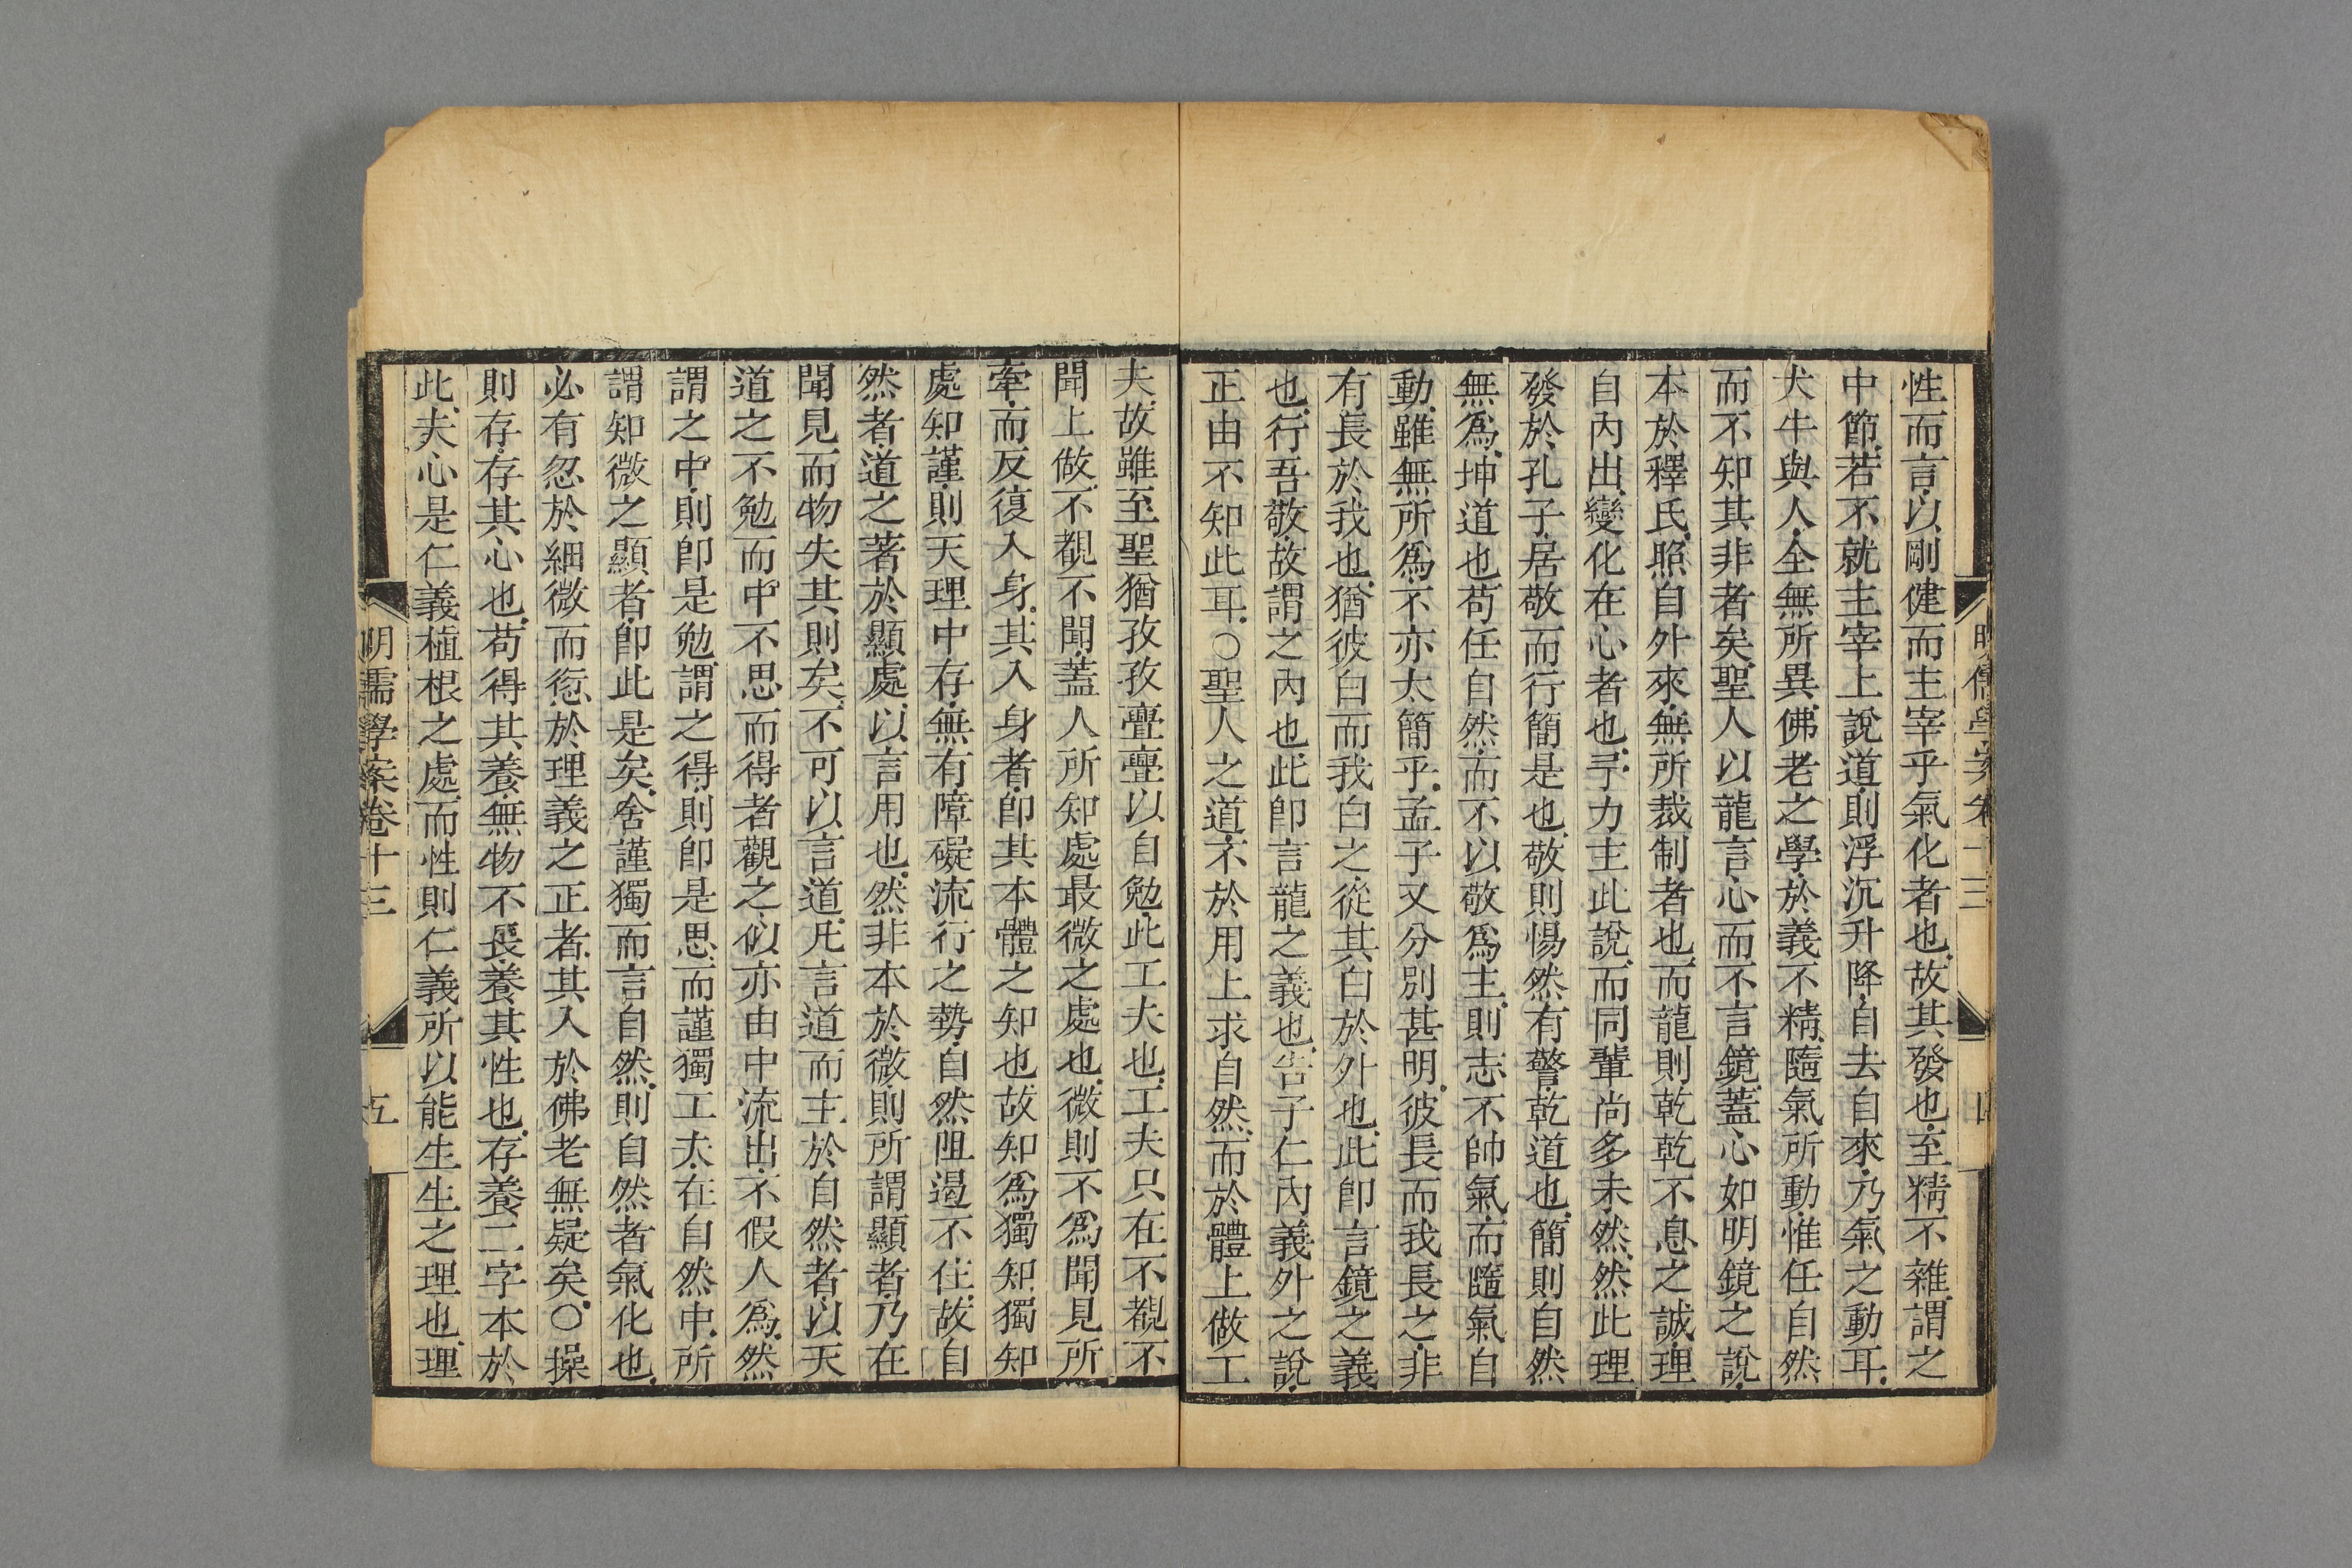 性而言以剛健而主宰乎氣化者也故其發也至精不雜謂之
中節若不就主宰上說道則浮沉升降自去自來乃氣之動耳
犬牛與人全無所異佛老之學於義不精隨氣所動惟任自然
而不知其非者矣聖人以龍言心而不言鏡蓋心如明鏡之說
本於釋氏照自外來無所裁制者也而龍則乾乾不息之誠理
自內出變化在心者也予力主此說而同輩尚多未然然此理
發於孔子居敬而行簡是也敬則惕然有警乾道也簡則自然
無爲坤道也苟任自然而不以敬爲主則志不帥氣而隨氣自
動雖無所爲不亦太簡乎孟子又分別甚明彼長而我長之非
有長於我也猶彼白而我白之從其白於外也此卽言鏡之義
也行吾敬故謂之內也此卽言龍之義也告子仁內義外之說
正由不知此耳○聖人之道不於用上求自然而於體上做工
夫故雖至聖猶孜孜亹亹以自勉此工夫也工夫只在不覩不
聞上做不覩不聞蓋人所知處最微之處也微則不爲聞見所
牽而反復入身其入身者卽其本體之知也故知爲獨知獨知
處知謹則天理中存無有障礙流行之勢自然阻遏不住故自
然者道之著於顯處以言用也然非本於微則所謂顯者乃在
聞見而物失其則矣不可以言道凡言道而主於自然者以天
道之不勉而中不思而得者觀之似亦由中流出不假人爲然
謂之中則卽是勉謂之得則卽是思而謹獨工夫在自然中所
謂知微之顯者卽此是矣舍謹獨而言自然則自然者氣化也
必有忽於細微而愆於理義之正者其入於佛老無疑矣○操
則存存其心也苟得其養無物不長養其性也存養二字本於
此夫心是仁義植根之處而性則仁義所以能生生之理也理
明儒學案卷十三
五